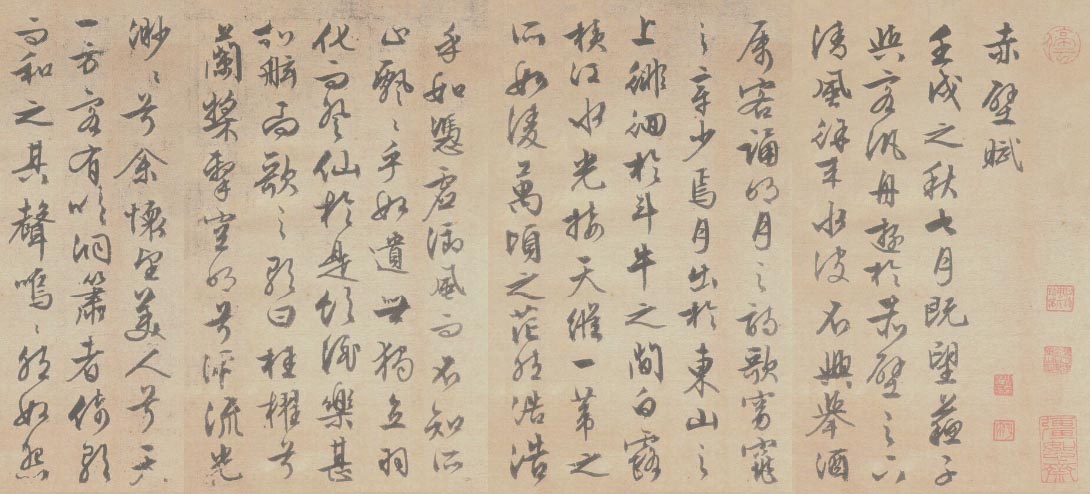 赤壁賦
壬戌之秋七月既望蘇子
與客汎舟遊於赤壁之下
清風徐來水波不興舉酒
屬客誦明月之詩歌窈窕
之章少焉月出於東山之
上徘徊於斗牛之間白露
橫江水光接天縱一葦之
所如淩萬頃之茫然浩浩
乎如憑虛御風而不知所
止飄〻乎如遺世獨立羽
化而登仙於是飲酒樂甚
扣舷而歌之歌曰桂櫂兮
蘭槳擊空明兮泝流光
渺〻兮余懷望美人兮天
一方客有吹洞簫者倚歌
而和之其聲嗚〻然如怨